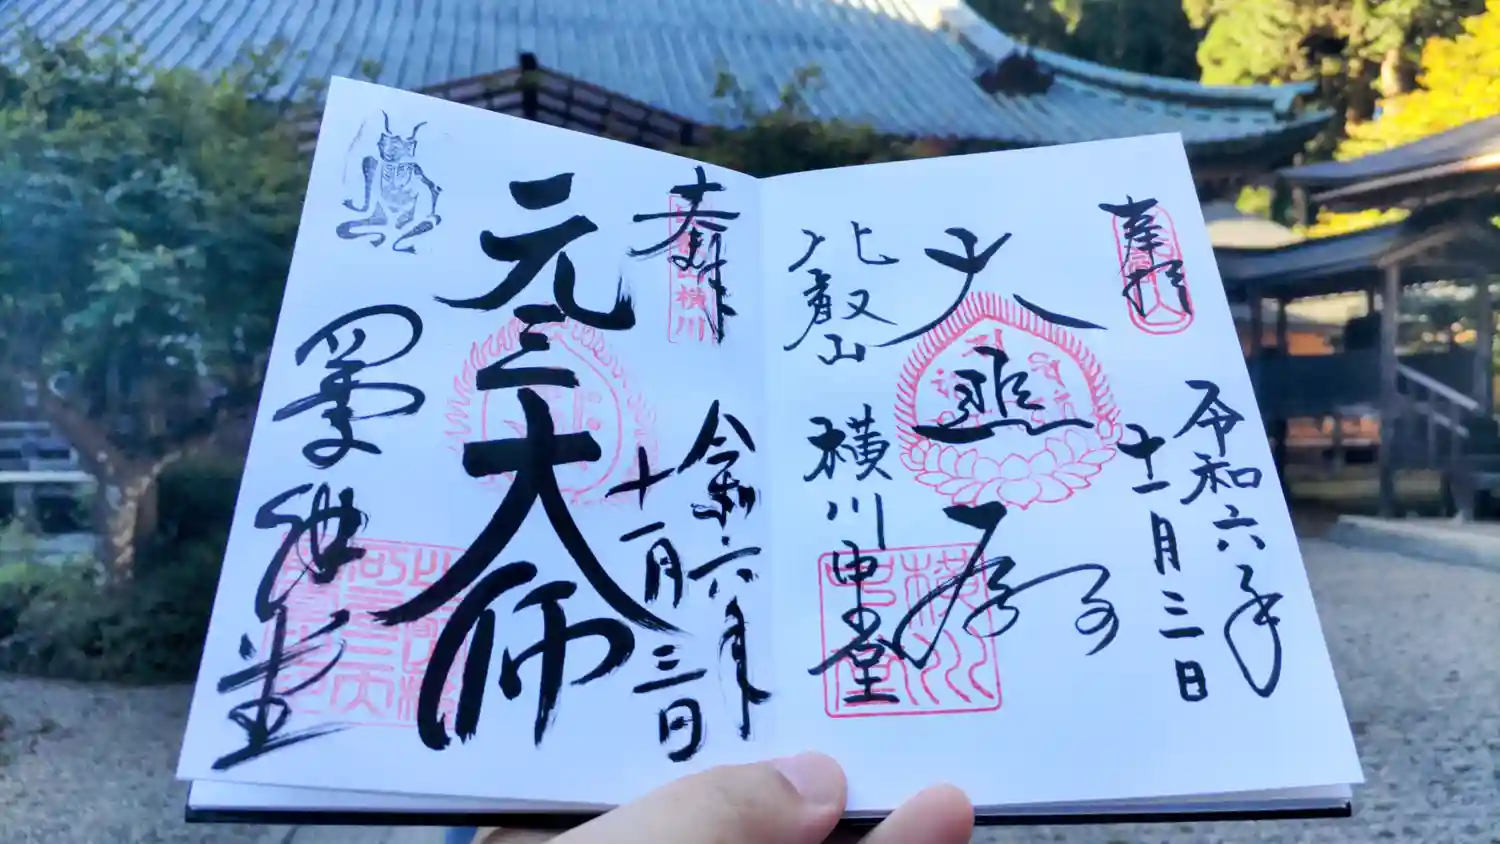 奉拝
令和六年
十一月三日
大悲殿
比叡山
横川中堂
奉拝
横川
令和六年
十一月三日
元三大師